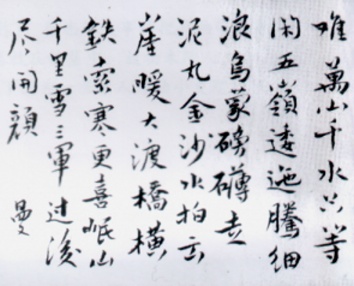 难萬山千水只等
闲五嶺逶迤騰细
浪烏蒙磅礴走
泥丸金沙水拍云
崖暖大渡橋横
鉄索寒更喜岷山
千里雪三軍过後
尽開顔